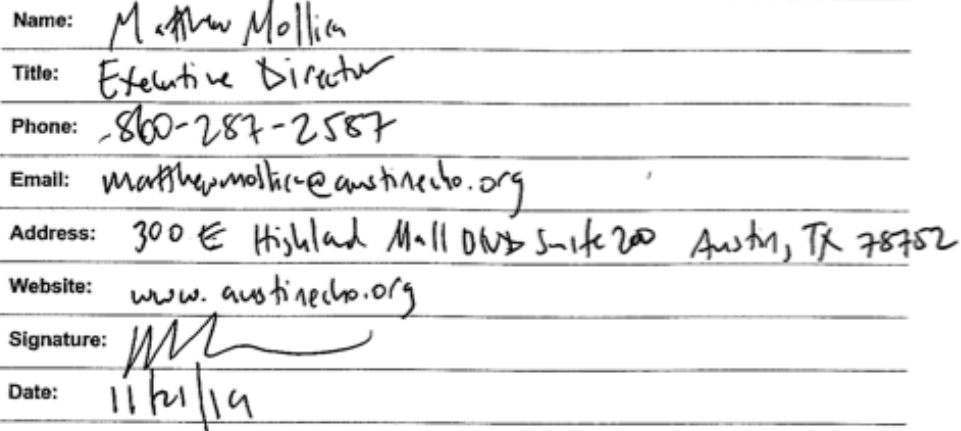 Name: Matthew Mollica
Title: Executive Director
Phone: 860-287-2587
Email: matthewmollica@austinecho.org
Address: 300 E Highland Mall Blvd Suite 200 Austin, TX 78752
Website: www.austinecho.org
Signature:
Date: 11/21/19